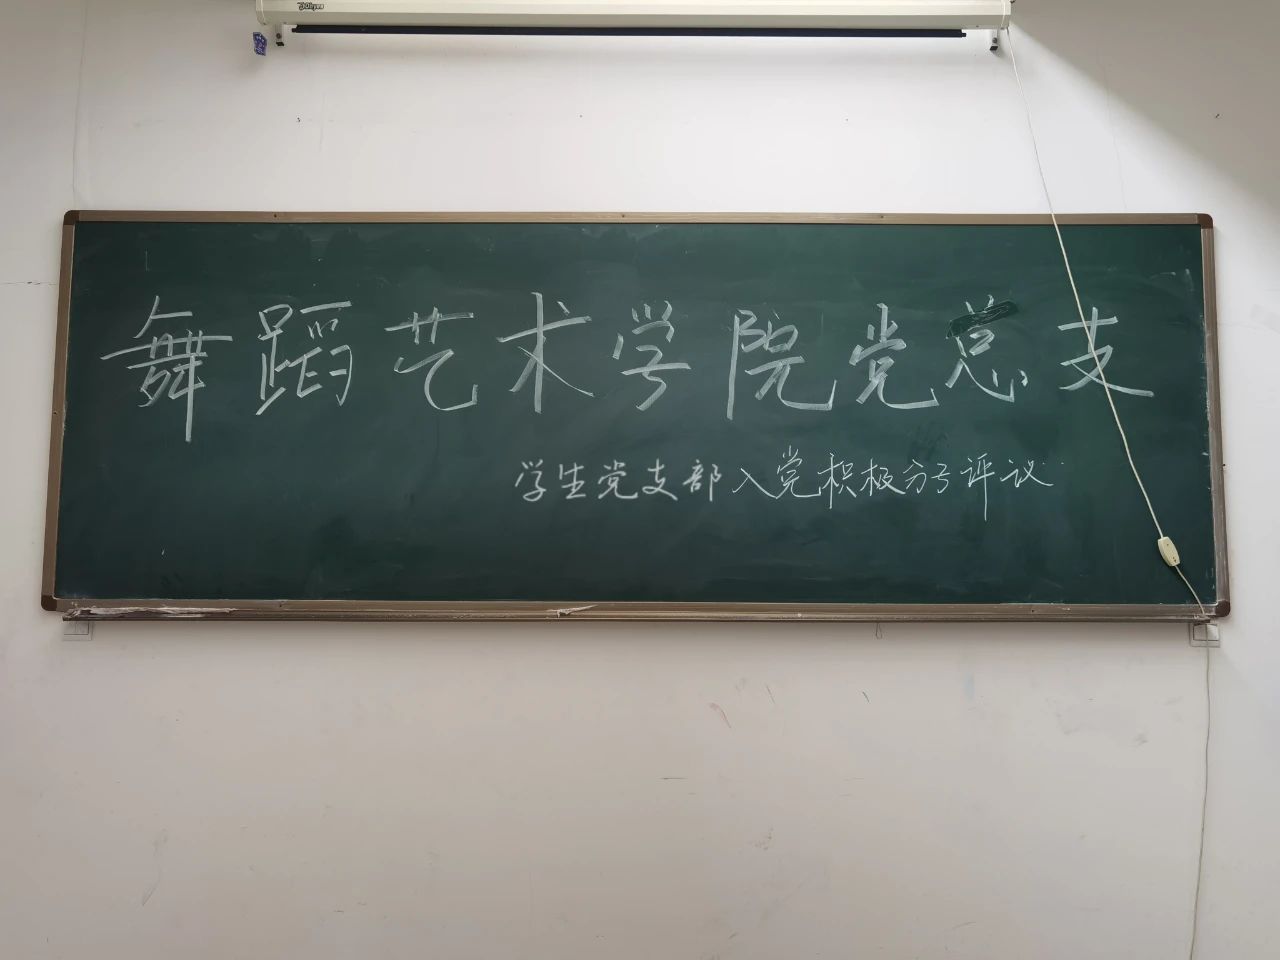 舞蹈艺术学院党总支
学生党支部入党积极分子评议